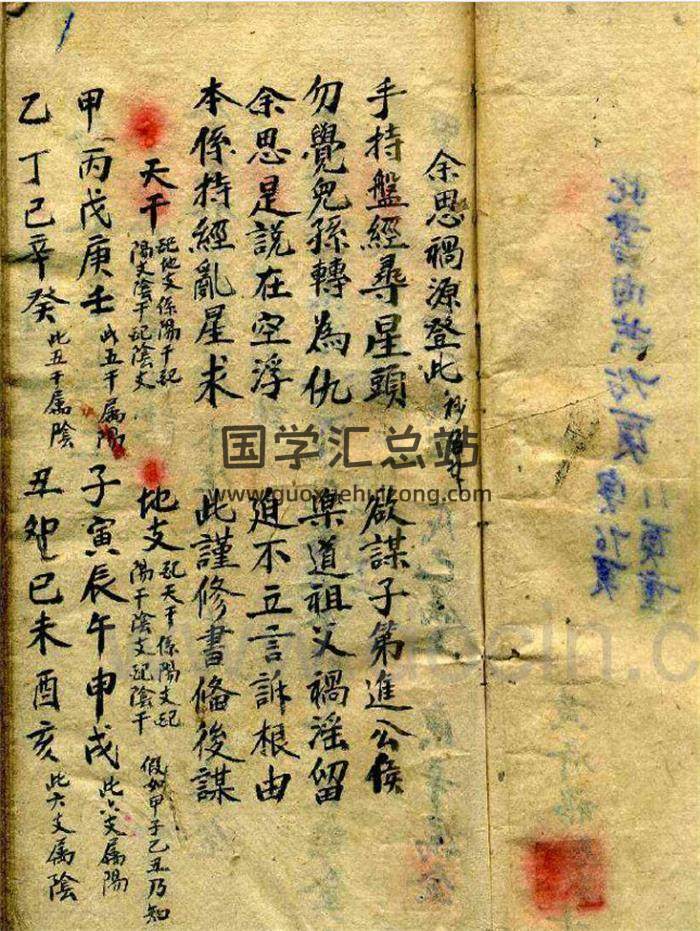 余思禍源登此
手持盤經尋星頭 欲謀子第進公侯
勿覺兒孫轉為仇 樂道祖父禍滛留
余思是說在空浮 迫不立言訴根由
本係持經亂星求 此謹修書俻後謀
天干 配地支係陽干配陽支陰干配陰支 地支 配天干係陽支配陽干陰支配陰干 假如甲子乙丑乃知
甲丙戊庚壬 此五干属陽 子寅辰午申戌 此六支属陽
乙丁己辛癸 此五干属陰 丑卯巳未酉亥 此六支属陰
国学汇总站
www.guoxuehuizong.com